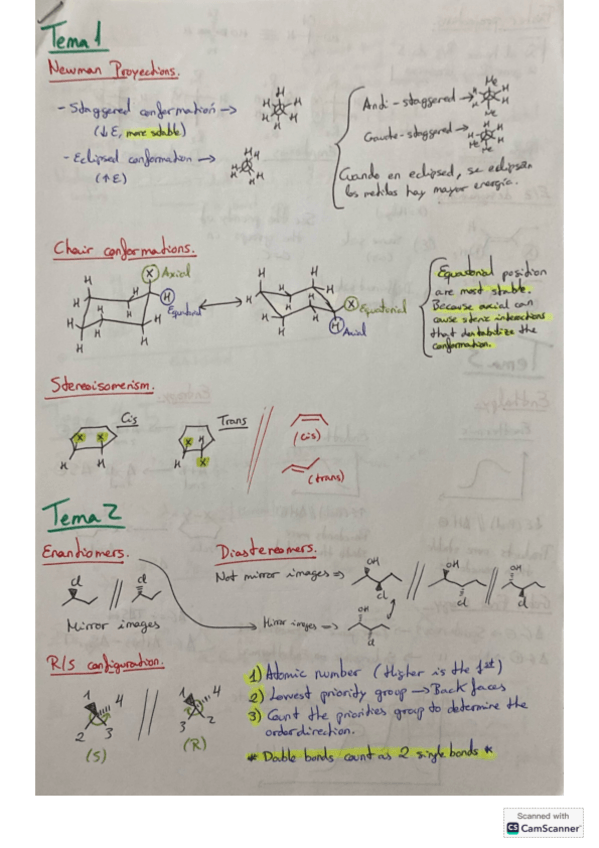 Tema 1
Newman Proyections.
- Staggered conformation →
(↓E, more stable)
- Eclipsed conformation →
(↑E)
Anti-staggered →
Gauche-staggered →
Cuando en eclipsed, se eclipsan
los metilos hay mayor energía.
H H H H H H
H H H H H H
Me H H H H Me
H H H H Me Me
Chair conformations.
X Axial
H Equatorial
X Equatorial
H Axial
H H H H H H
H H H H H
Equatorial position
are most stable.
Because axial can
cause steric interactions
that destabilize the
conformation.
Stereoisomerism.
Cis
X X
H H
Trans
X H
H X
(cis)
(trans)
Tema 2
Enantiomers.
Cl // Cl
Mirror images
Diastereomers.
Not mirror images ⇒
OH Cl // OH Cl // OH Cl
→ Mirror images ⇒
OH Cl
R/S configuration.
1 4 2 3
(S)
1 4 3 2
(R)
1) Atomic number (Higher is the 1st)
2) Lowest priority group → Back faces
3) Count the priorities group to determine the
order direction.
* Double bonds count as 2 single bonds *
Scanned with
CS CamScanner